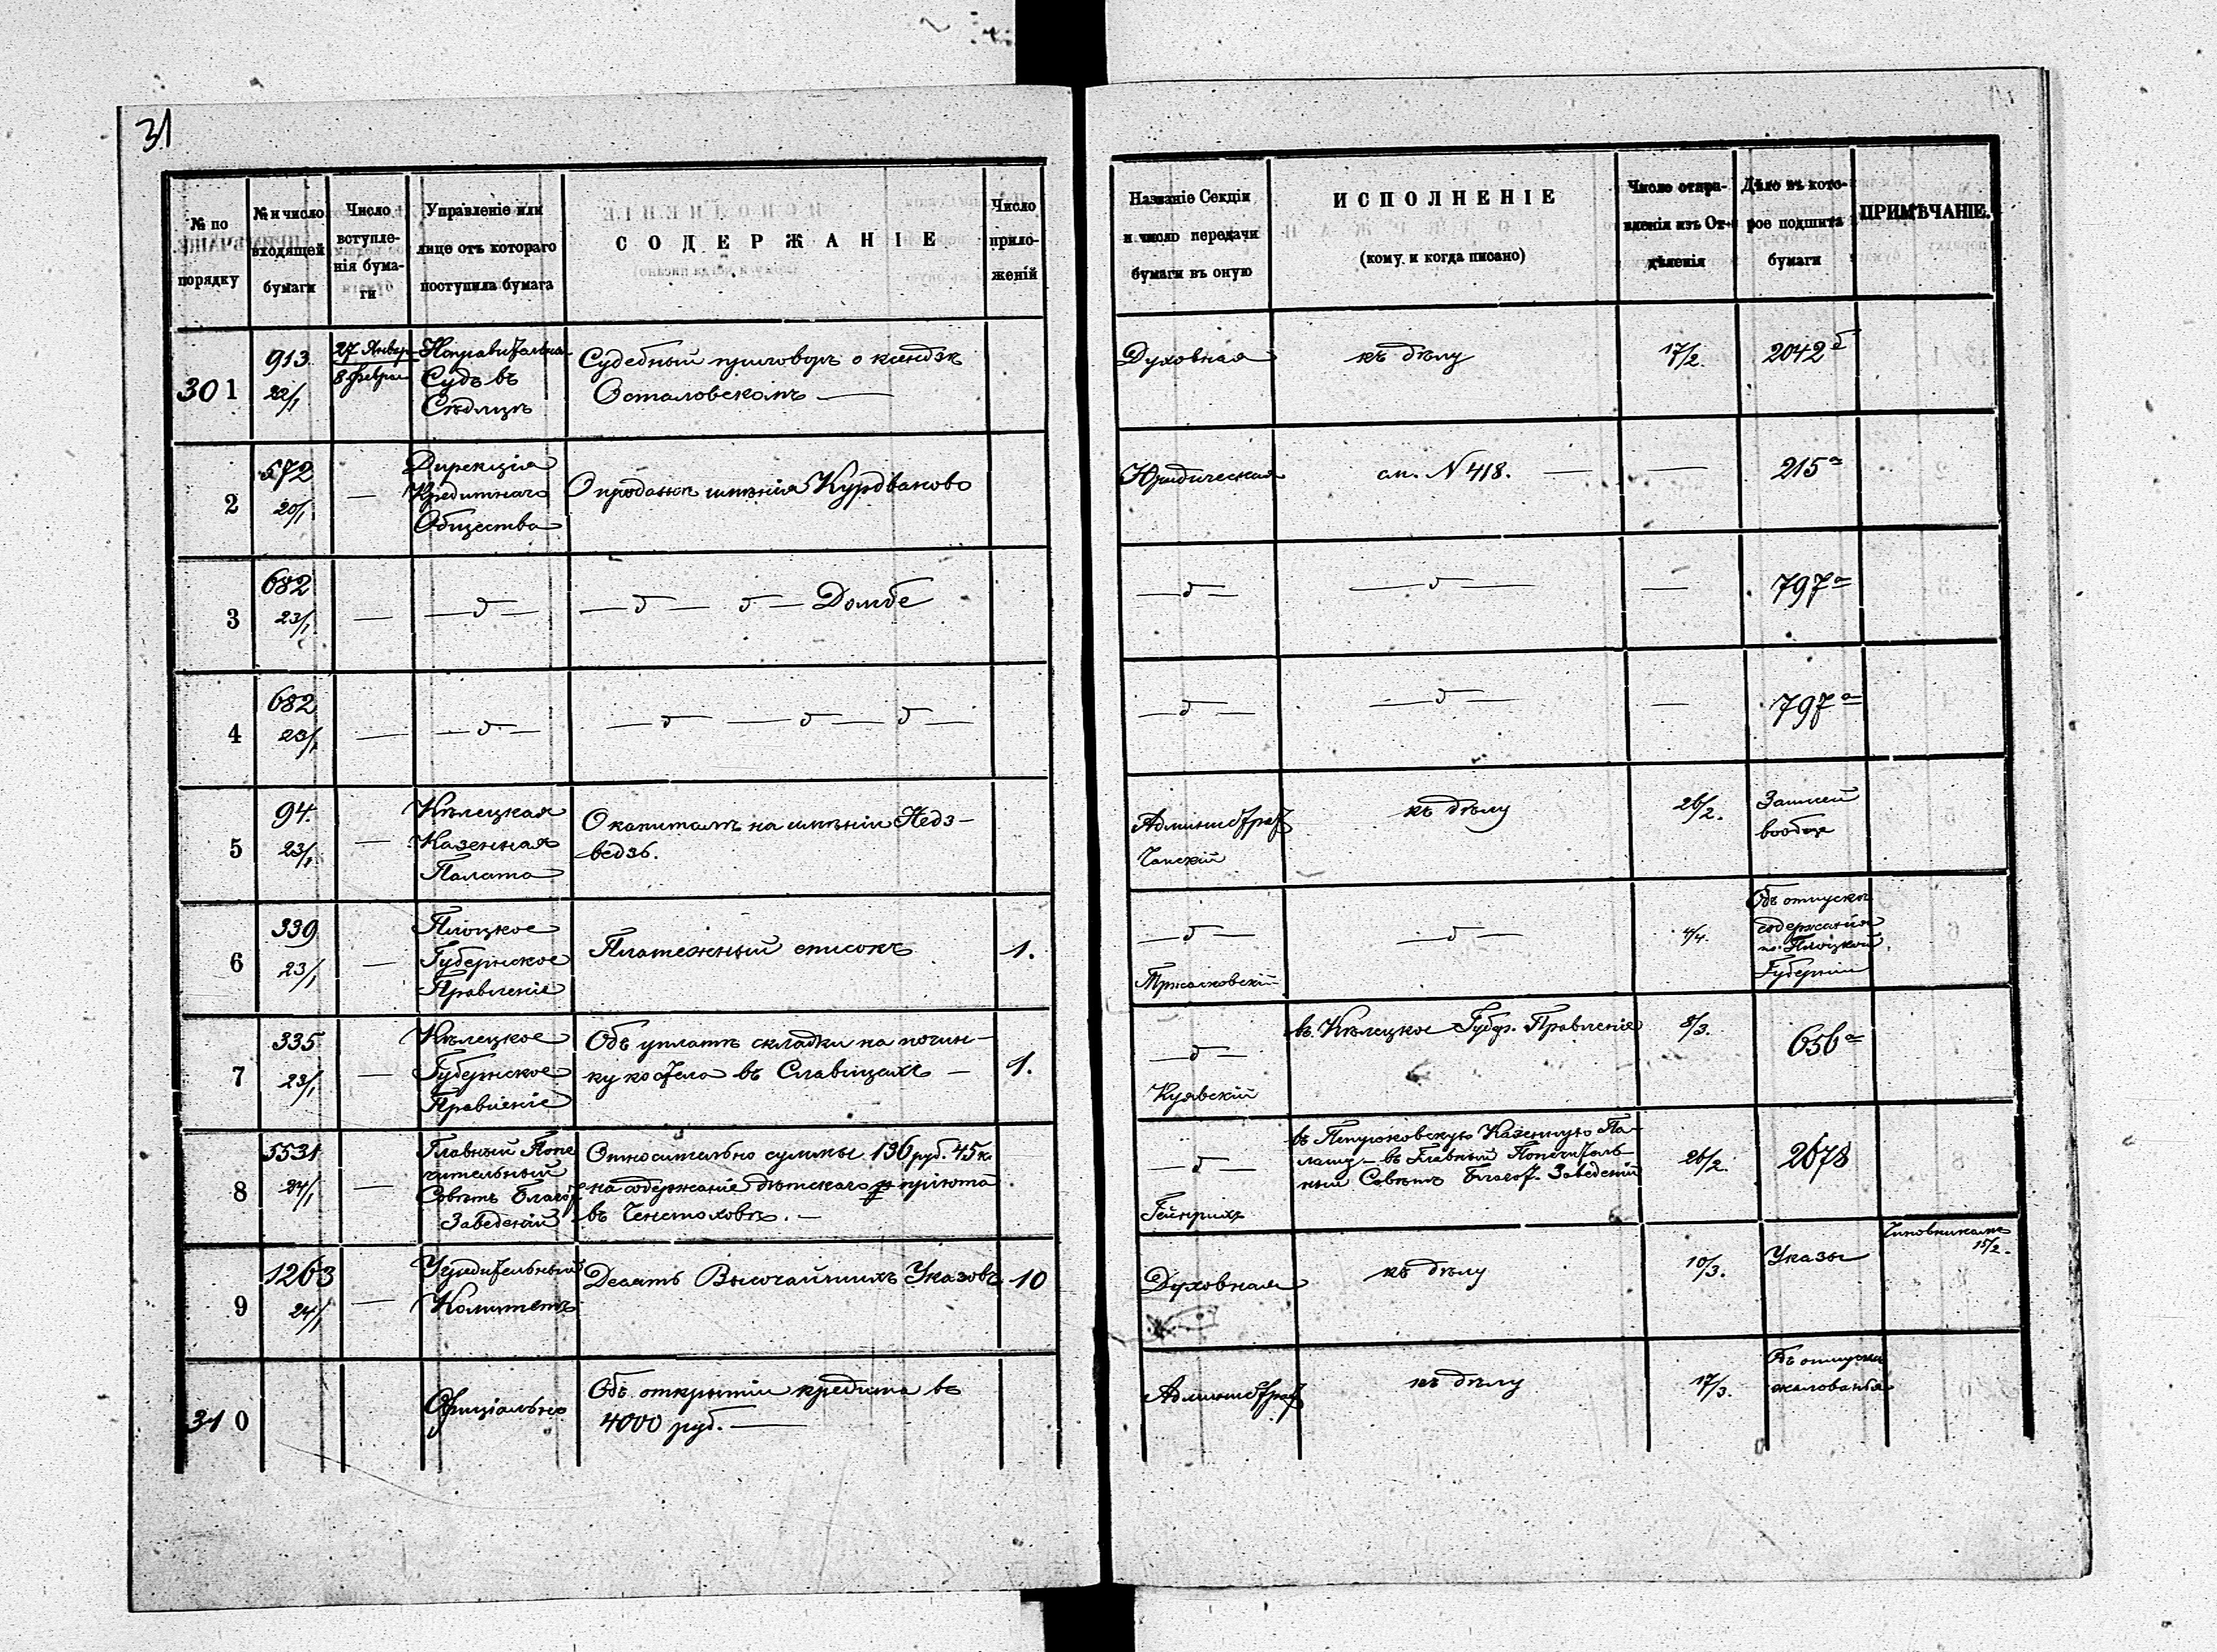 31
№ по порядку
№ и число входящей бумаги
Число вступле-нія бума-ги
Управленіе или лице отъ котораго поступила бумага
СОДЕРЖАНІЕ
Число прило-женій
Названіе Секціи и число передачи бумаги въ оную
ИСПОЛНЕНІЕ
(кому и когда писано)
Число отпра-вленія изъ От-дѣленія
Дѣло въ кото-рое подшита бумаги
ПРИМѢЧАНІЕ.
301
913
22/1
27 Январ
8 феврал
Исправительн
Судъ въ
Сѣдлицѣ
Судебный приговоръ о ксендзѣ
Осталовскомъ —
Духовная
къ дѣлу
17/2.
2042 б
2
572
20/1
—
Дирекція
Кредитнаго
Общества
О продажѣ имѣнія Курдваново
Юридическая
см. N 418. —
—
215 а
3
682
23/1
—
— " —
— " — " — Домбе
— " —
— " —
—
797 а
4
682
23/1
—
— " —
— " — — " — " —
— " —
— " —
—
797 а
5
94.
23/1
—
Кѣлецкая
Казенная
Палата
О капиталѣ на имѣніи Недз-
ведзь.
Администрат
Чапскій
къ дѣлу
26/2.
Записей
вообще
6
339
23/1
—
Плоцкое
Губернское
Правленіе
Платежный списокъ
1.
— " —
Тржасковскій
— " —
4/4.
Объ отпускѣ
содержанія
по Плоцкой
Губерніи
7
335
23/1
—
Кѣлецкое
Губернское
Правленіе
Объ уплатѣ складки на почин-
ку костела въ Славицахъ —
1.
— " —
Куявскій
въ Кѣлецкое Губер. Правленіе
8/3.
656 а
8
5531
24/1
—
Главный Попе
чительный
Совѣтъ Благот
Заведеній
Относительно суммы 136 руб. 45 к.
на содержаніе дѣтскаго пріюта
въ Ченстоховѣ. —
— " —
Гейнрихъ
въ Петроковскую Казенную Па-
лату — въ Главный Попечитель
ный Совѣтъ Благот. Заведеній
26/2.
2678
9
1263
24/1
—
Учредительный
Комитетъ
Десять Высочайшихъ Указовъ
10
Духовная
къ дѣлу
10/3.
Указы
Чиновникамъ
15/2.
310
Офиціально
Объ открытіи кредита въ
4000 руб. —
Администрат
къ дѣлу
17/3.
Объ отпускѣ
жалованья